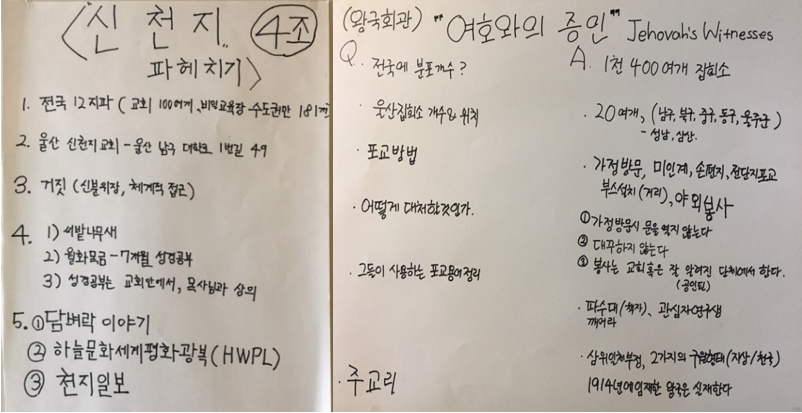 <신천지 4조
파헤치기>
1. 전국 12지파 ( 교회 100여개, 비밀교육장-수도권만 181개)
2. 울산 신천지교회 - 울산 남구 대학로 1번길 49
3. 거짓 (신분위장, 체계적 접근)
4. 1)
2) 월화목금 - 7개월 성경공부
3) 성경공부는 교회안에서, 목사님과 상의
5. ① 담벼락 이야기
② 하늘문화세계평화광복(HWPL)
③ 천지일보
(왕국회관) "여호와의 증인" Jehovah's Witnesses
Q. 전국에 분포개수?
A. 1천 400여개 집회소
· 울산집회소 개수 & 위치
· 20여개, (남구, 북구, 중구, 동구, 울주군)
- 성남, 삼산.
· 포교방법
· 가정방문, 미인계, 손편지, 전단지포교
부스설치(거리), 야외봉사
· 어떻게 대처할것인가.
① 가정방문시 문을 열지 않는다
② 대꾸하지 않는다
③ 봉사는 교회 혹은 잘 알려진 단체에서 한다.
(공인된)
· 그들이 사용하는 포교용어정리
· 파수대(책자), 관심자연구생
깨어라
· 주교리
· 삼위일체부정, 2가지의 구원형태 (지상/천국)
1914년에 임재한 왕국은 실재한다